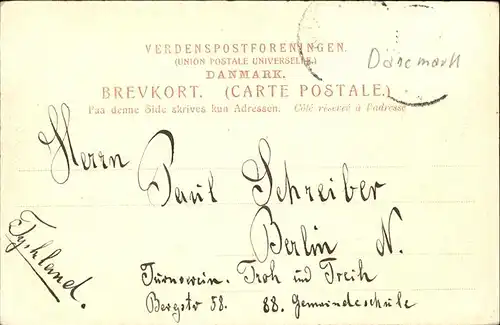 VERDENSPOSTFORENINGEN.
(UNION POSTALE UNIVERSELLE.)
DANMARK.
Dänemark
BREVKORT. (CARTE POSTALE.)
Paa denne Side skrives kun Adressen. Côté réservé à l'adresse
Herrn
Paul Schreiber
Berlin N.
Tyskland.
Turnverein. Froh und Freih
Bergstr 58. 88. Gemaindeschule